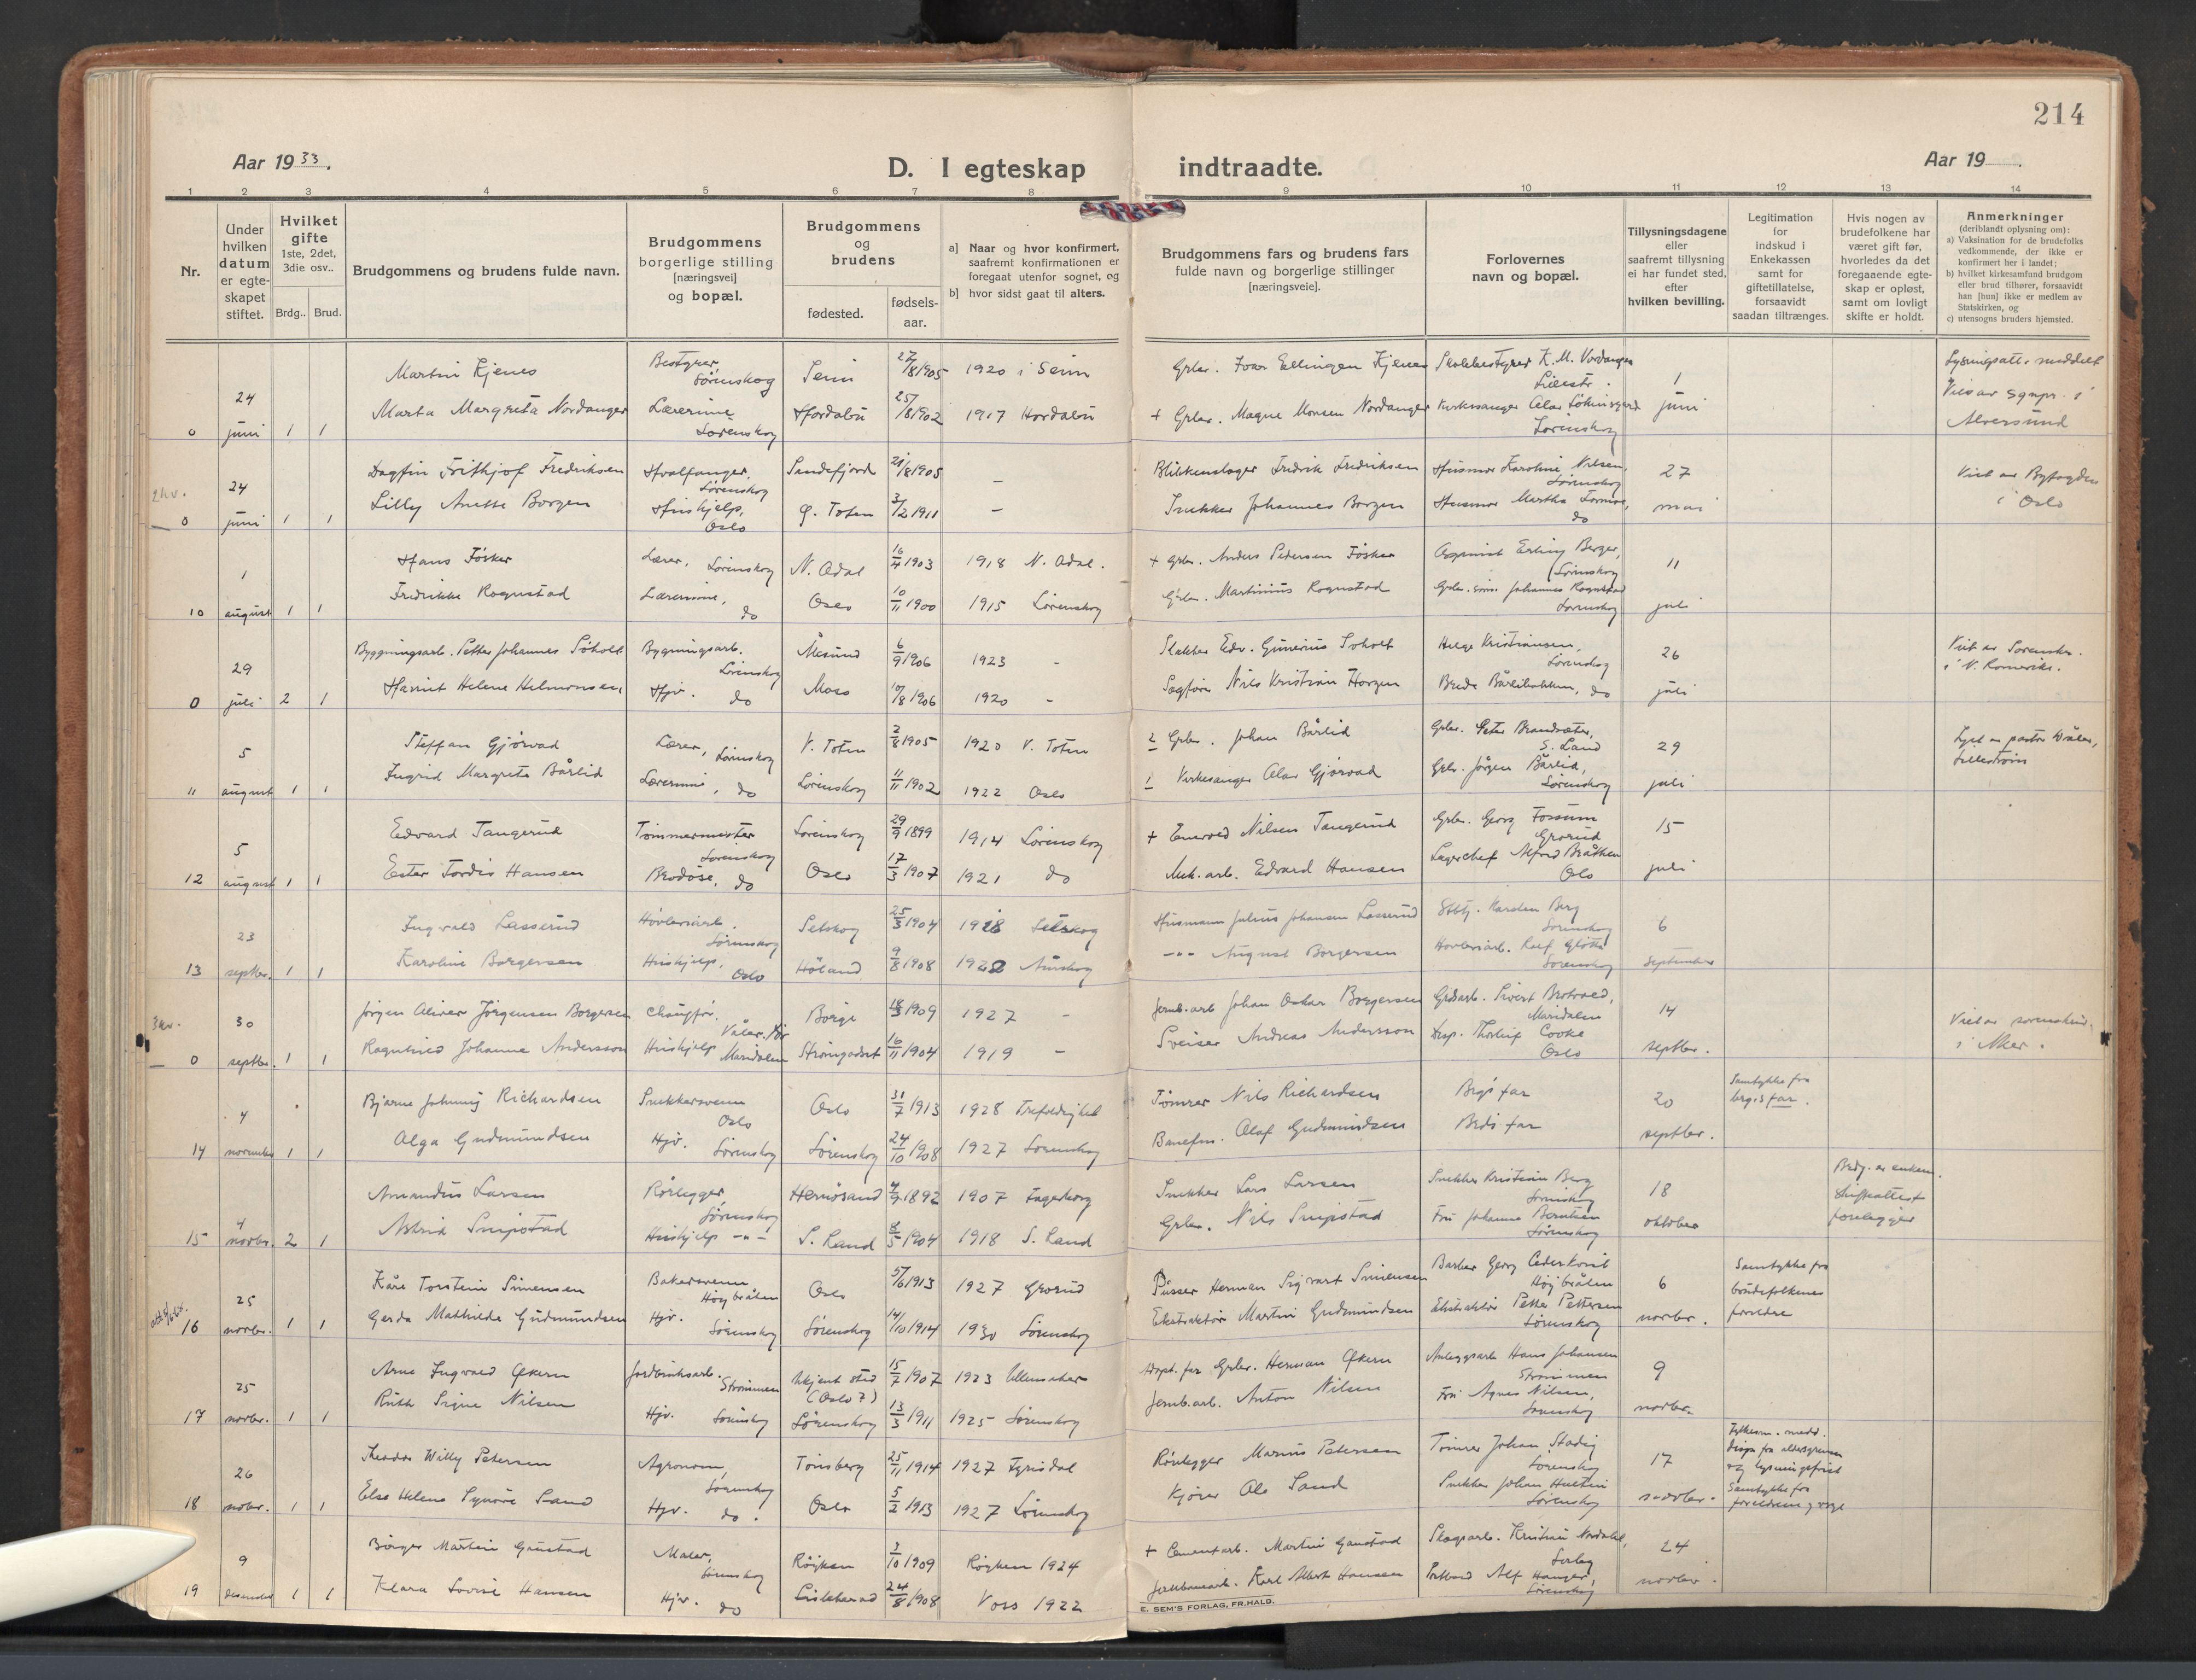 214
Aar 1933.
D. I egteskap indtraadte.
Aar 19 .
1 2 3 4 5 6 7 8 9 10 11 12 13 14
Nr.
Under hvilken datum er egteskapet stiftet.
Hvilket gifte 1ste, 2det, 3die osv..
Brdg.. Brud.
Brudgommens og brudens fulde navn.
Brudgommens borgerlige stilling [næringsvei] og bopæl.
Brudgommens og brudens
fødested.
fødsels-aar.
a] Naar og hvor konfirmert, saafremt konfirmationen er foregaat utenfor sognet, og
b] hvor sidst gaat til alters.
Brudgommens fars og brudens fars fulde navn og borgerlige stillinger [næringsveie].
Forlovernes navn og bopæl.
Tillysningsdagene eller saafremt tillysning ei har fundet sted, efter hvilken bevilling.
Legitimation for indskud i Enkekassen samt for giftetillatelse, forsaavidt saadan tiltrænges.
Hvis nogen av brudefolkene har været gift før, hvorledes da det foregaaende egteskap er opløst, samt om lovligt skifte er holdt.
Anmerkninger (deriblandt oplysning om): a) Vaksination for de brudefolks vedkommende, der ikke er konfirmert her i landet; b) hvilket kirkesamfund brudgom eller brud tilhører, forsaavidt han [hun] ikke er medlem av Statskirken, og c) utensogns bruders hjemsted.
Martin Kjenes Bestyrer, Lørenskog Seim 27/8 1905 1920 i Seim
0 24 juni 1 1 Marta Margreta Nordanger Lærerinne Lørenskog 25/8 1902 1917
+ Grbr. Magne Monsen Nordanger
1 juni
Dagfin Fritkjof Fredriksen Hvalfanger, Lørenskog Sandefjord 21/8 1905 –
0 24 juni 1 1 Lilly Anette Borgen Hushjelp, Oslo Ø. Toten 3/2 1911 –
Blikkenslager Fredrik Fredriksen Husmor Karoline Nilsen, Lørenskog 27
Snekker Johannes Borgen Husmor Martha do mai
Viet av Byfogden i Oslo
Hans Fösker Lærer, Lørenskog N. Odal 16/4 1903 1918 N. Odal.
10 1 august 1 1 Fredrikke Rognstad Lærerinne, do Oslo 10/11 1900 1915 Lørenskog
+ Grbr. Anders Pedersen Fösker Erling Berger, Lørenskog 11
Grbr. Martinius Rognstad Johannes Rognstad Lørenskog juli
Bygningsarb. Petter Johannes Söholt Bygningsarb. Lørenskog 6/9 1906 1923 –
0 29 juli 2 1 Harriet Helene Helmonsen Hjv. do Moss 10/8 1906 1920 –
Slakter Edv. Gunerius Soholt Helge Kristiansen, Lørenskog 26
Nils Kristian do juli
Viet av Sorenskr. i N. Romerike.
Steffan Gjørvad Lærer, Lørenskog V. Toten 2/8 1905 1920 V. Toten
11 5 august 1 1 Ingrid Margrete Bårlid Lærerinne, do Lørenskog 11/11 1902 1922 Oslo
2 Grbr. Johan Bårlid Grbr. Peter S. Land 29
1 Kirkesanger Olav Gjørvad Grbr. Jörgen Bårlid, Lørenskog juli
Edvard Tangerud Tömmermester Lørenskog Lørenskog 29/9 1899 1914 Lørenskog
12 5 august 1 1 Ester Tordis Hansen do Oslo 17/3 1907 1921 do
+ Nilsen Tangerud Grbr. Georg Fossum Grorud 15
Mek. arb. Edvard Hansen Lagerchef Alfred Bråthen Oslo juli
Ingvald Lasserud Høvleriarb. Lørenskog Setskog 25/3 1904 1918 Setskog
13 23 septbr. 1 1 Karoline Borgersen Hushjelp, Oslo Höland 9/8 1908 1922 Aurskog
Husmann Julius Johansen Lasserud Karsten Berg Lorenskog 6
–"– August Borgersen Hovleriarb. Lorenskog september
Jörgen Oliver Jörgensen Borgersen Våler Borge 18/3 1909 1927 –
0 30 septbr. 1 1 Ragnhild Johanne Andersson Hushjelp Maridalen 16/11 1904 1919 –
Jernb.arb Johan Oskar Borgersen Maridalen 14
Sveiser Andreas Andersson Cooke Oslo septbr.
Viet av sorenskriv. i Aker.
Bjarne Johnny Richardsen Snekkersvenn Oslo Oslo 31/7 1913 1928
14 4 november 1 1 Olga Gudmundsen Hjv. Lørenskog Lörenskog 24/10 1908 1927 Lorenskog
Tömrer Nils Richardsen Brg's far 20
Banefm. Olaf Gudmundsen Brds far septbr.
Samtykke fra brg.s far.
Amandus Larsen Rørlegger, Lørenskog Hernösand 4/9 1892 1907 Fagerborg
15 4 novbr. 2 1 Astrid Snipstad Hushjelp –"– S. Land 8/5 1904 1918 S. Land
Snekker Lars Larsen Snekker Kristian Berg Lorenskog 18
Grbr. Nils Snipstad Fru Johanne Berntsen Lørenskog oktober
Brdg. er enkem. Skifteattest forelegger
Kåre Torstein Simensen Bakersvenn Höybråten Oslo 5/6 1913 1927 Grorud
16 25 novbr. 1 1 Gerda Mathilde Gudmundsen Hjv. Lörenskog Lörenskog 14/10 1914 1930 Lörenskog
Pusser Herman Sigvart Simensen Barber Georg Höybråten 6
Martin Gudmundsen Petter Pettersen Lörenskog novbr.
Samtykke fra brudefolkenes foreldre
Arne Ingvald Økern Jordbruksarb. Strömmen Ukjent sted (Oslo?) 15/7 1907 1923 Ullensaker
17 25 novbr. 1 1 Ruth Signe Nilsen Hjv. Lörenskog Lörenskog 13/3 1911 1925 Lörenskog
Adopt. far Grbr. Herman Økern Anleggsarb Hans Johansen Strömmen 9
Jernb.arb. Anton Nilsen Fru Agnes Nilsen, Lorenskog novbr.
Theodor Willy Petersen Agronom, Lørenskog Tønsberg 25/11 1914 1927 Fyrisdal
18 26 novbr. 1 1 Else Helene Synöve Sand Hjv. do. Oslo 5/2 1913 1927 Lörenskog
Rörlegger Marius Petersen Tömrer Johan Stadig Lorenskog 17
Kjörer Ole Sand Snekker Johan Lörenskog novbr.
Fylkesm. medd. disp. fra aldersgrensen og lysningsfrist Samtykke fra foreldrene
Börger Martin Gaustad Maler, Lörenskog Röyken 3/10 1909 Röyken 1924
19 9 desember 1 1 Klara Lovise Hansen Hjv. do 24/8 1908 Voss 1922
+ Cementarb. Martin Gaustad Kristian 24
Karl Albert Hansen Alf Hanger, Lörenskog novbr.
E. SEM'S FORLAG, FR.HALD.